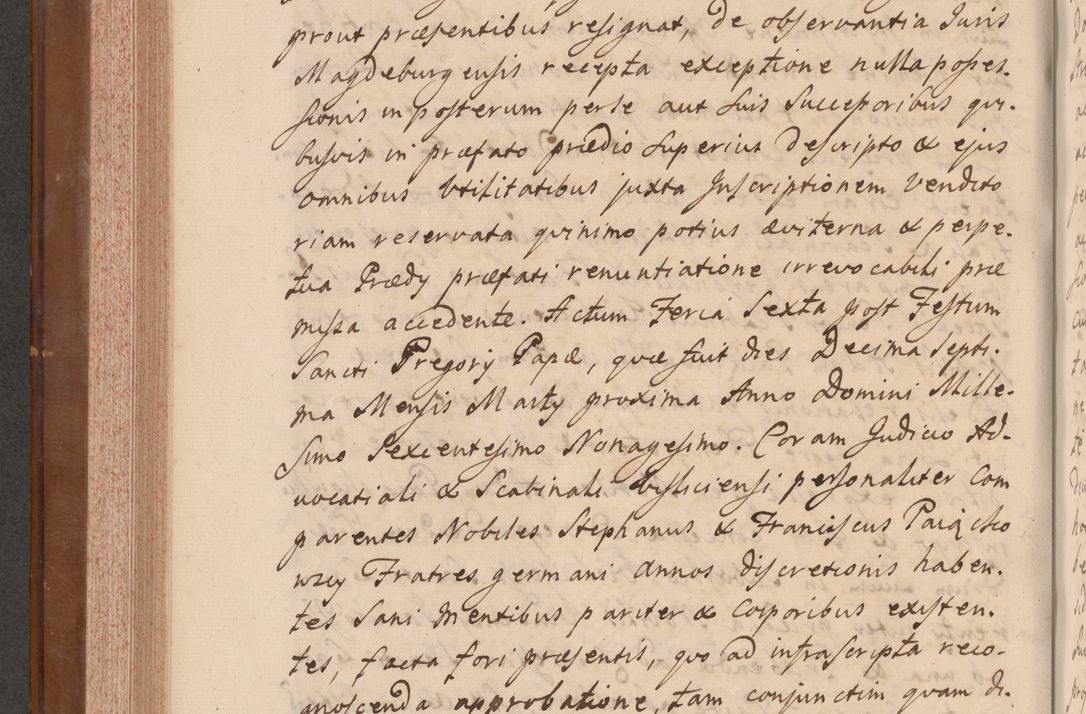 prout præsentibus resignat, de observantia Juris
Magdeburgensis recepta exceptione nulla posses-
sionis in posterum per se aut suis Successoribus qui-
busvis in præfato prædio superius descripto & ejus
omnibus Utilitatibus juxta Inscriptionem Vendito
riam reservata quinimo potius æviterna & perpe-
tua Prædy præfati renuntiatione irrevocabili præ
missa accedente. Actum Feria Sexta post Festum
Sancti Gregorÿ Papæ, quæ fuit dies Decima Septi-
ma Mensis Martÿ proxima Anno Domini Mille-
simo Sexcentesimo Nonagesimo. Coram Judicio Ad-
vocatiali & Scabinali Visliciensi personaliter Com
parentes Nobiles Stephanus & Franciscus Paiącsko
wscy Fratres germani annos discretionis haben-
tes Sani Mentibus pariter & Corporibus existen-
tes, facta fori præsentis, quo ad infrascripta reco-
gnoscenda approbatione, tam conjunctim quam di-